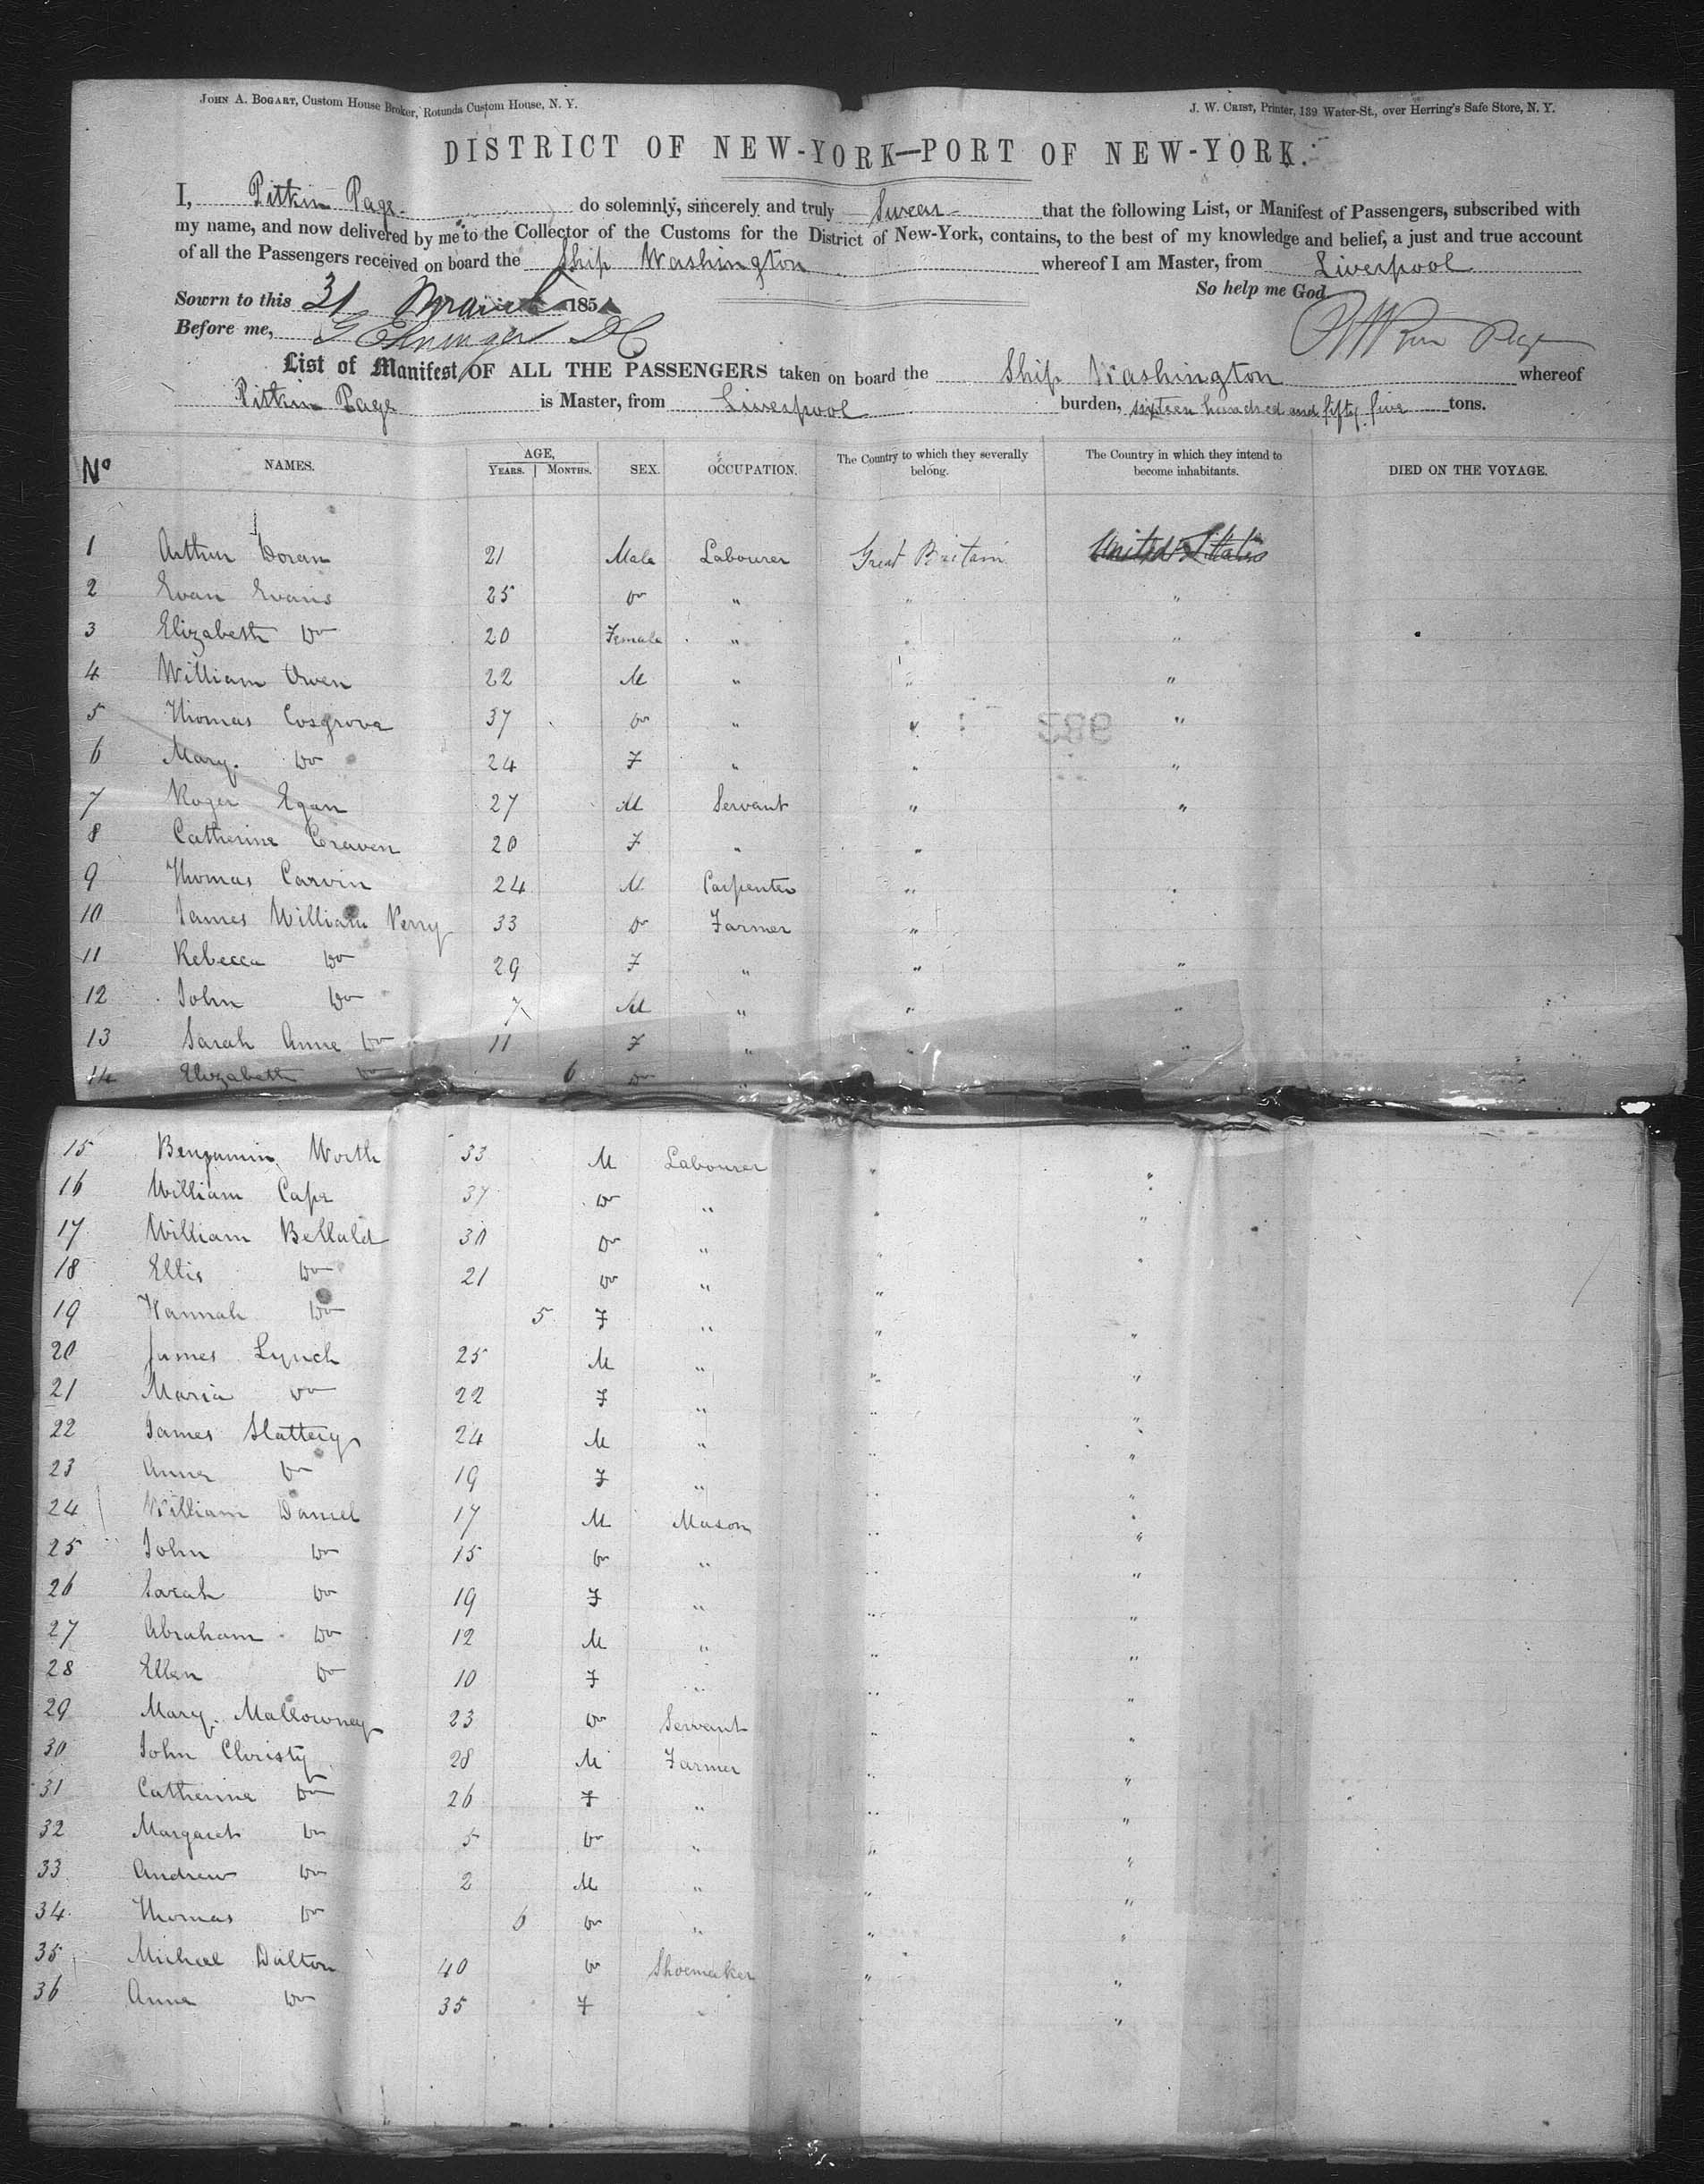 JOHN A. BOGART, Custom House Broker, Rotunda Custom House, N. Y.
J. W. CRIST, Printer, 139 Water-St., over Herring's Safe Store, N. Y.
DISTRICT OF NEW-YORK—PORT OF NEW-YORK.
I, Pitkin Page do solemnly, sincerely and truly Swear that the following List, or Manifest of Passengers, subscribed with
my name, and now delivered by me to the Collector of the Customs for the District of New-York, contains, to the best of my knowledge and belief, a just and true account
of all the Passengers received on board the Ship Washington whereof I am Master, from Liverpool
So help me God
Sowrn to this 31 March 185
Before me,
Pitkin Page
List of Manifest OF ALL THE PASSENGERS taken on board the Ship Washington whereof
Pitkin Page is Master, from Liverpool burden, sixteen hundred and fifty five tons.
No NAMES. AGE, YEARS. MONTHS. SEX. OCCUPATION. The Country to which they severally belong. The Country in which they intend to become inhabitants. DIED ON THE VOYAGE.
1 Arthur Doran 21 Male Labourer Great Britain United States
2 Evan Evans 25 Do " " "
3 Elizabeth Do 20 Female " " "
4 William Owen 22 M " " "
5 Thomas Cosgrove 37 Do " " "
6 Mary Do 24 F " " "
7 Roger Egan 27 M Servant " "
8 Catherine Craven 20 F " "
9 Thomas Carvin 24 M Carpenter " "
10 James William Perry 33 Do Farmer "
11 Rebecca Do 29 F " " "
12 John Do 7 M " " "
13 Sarah Anne Do 11 F " " "
14 Elizabeth Do 6 Do "
15 Benjamin Worth 33 M Labourer " "
16 William Cape 37 Do " " "
17 William Bellald 30 Do " " "
18 Ellis Do 21 Do " "
19 Hannah Do 5 F " " "
20 James Lynch 25 M " " "
21 Maria Do 22 F " " "
22 James Slattery 24 M " " "
23 Anne Do 19 F " " "
24 William Daniel 17 M Mason " "
25 John Do 15 Do " " "
26 Sarah Do 19 F " " "
27 Abraham Do 12 M " " "
28 Ellen Do 10 F " " "
29 Mary Mallowney 23 Do Servant " "
30 John Christy 28 M Farmer " "
31 Catherine Do 26 F " " "
32 Margaret Do 5 Do " " "
33 Andrew Do 2 M " " "
34 Thomas Do 6 Do " " "
35 Micheal Dalton 40 Do Shoemaker " "
36 Anne Do 35 F " "